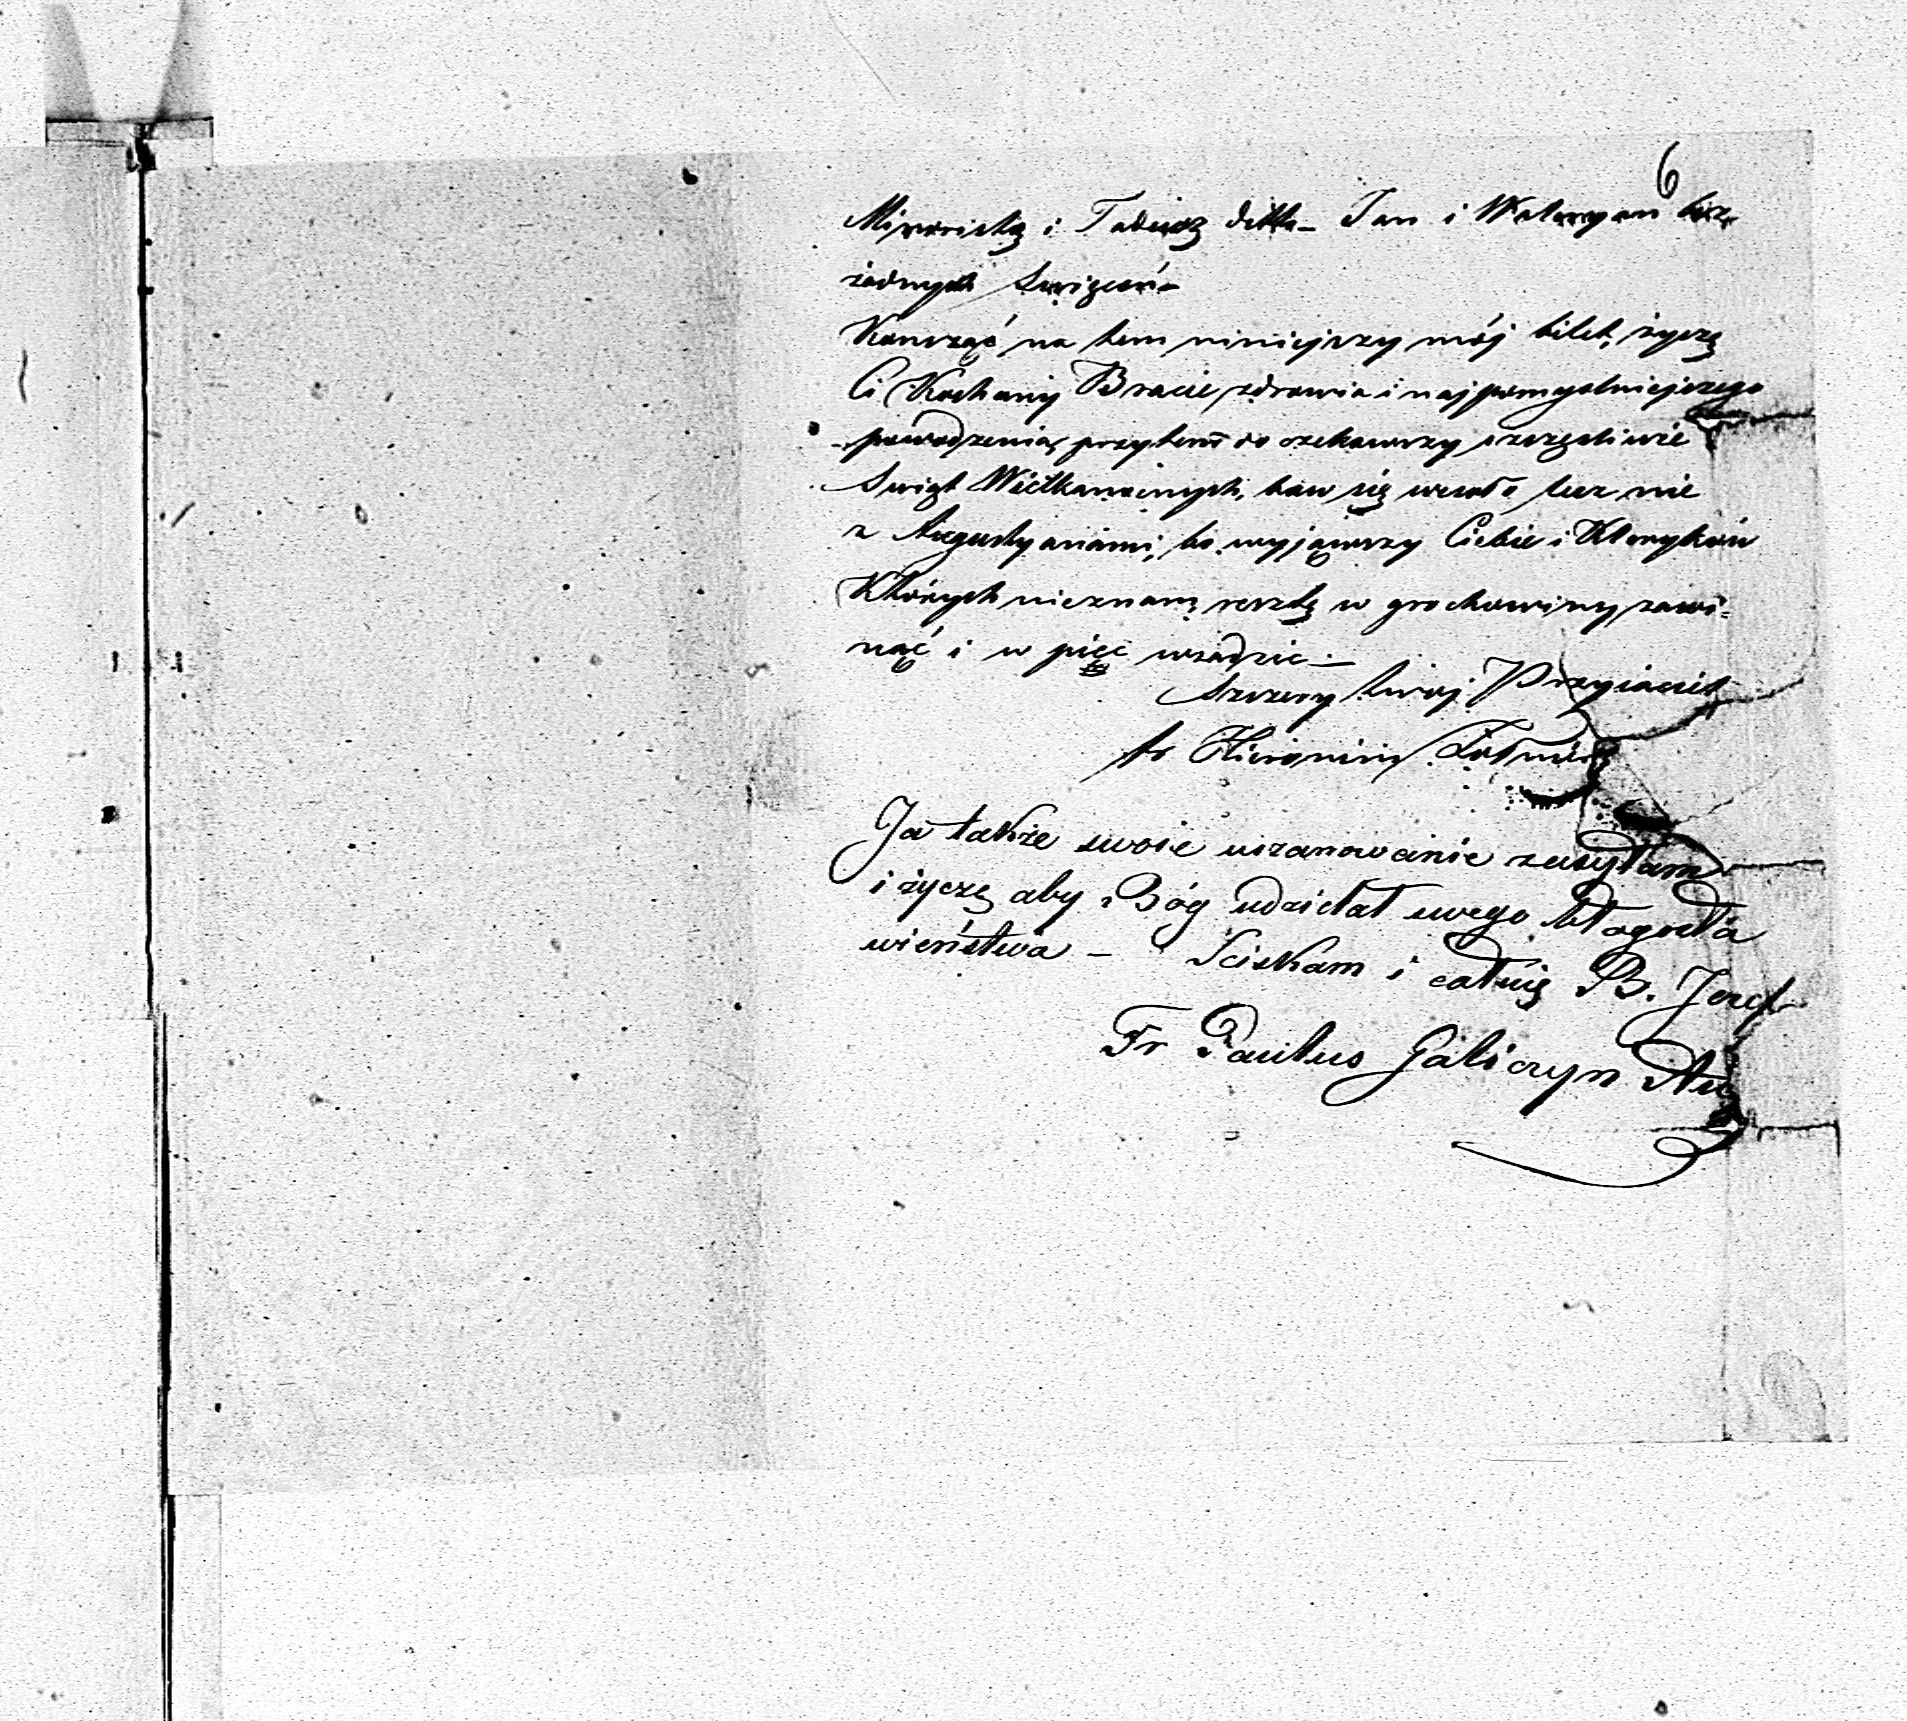 6
i Tadeusz ditto – Jan i Waleryan bez
żadnych Święceń –
Kończąć na tem niniejszy mój bilet, życzę
Ci Kochany Bracie zdrowia i najpomyslniejszego
powodzenia, przytem doczekawszy szczęsliwie
Swiąt Wielkanocnych, baw się wesoło lecz nie
z Augustyanami, bo wyjąwszy Ciebie i Kleryków
Których nieznam, resztę w grochowiny zawi=
nąć i w piec wsadzic –
Szczery twój Przyjaciel
fr Hieronim
Ja także swoie uszanowanie zasyłam
i życzę aby Bóg udzielał swego błogosła
wieństwa – Sciskam i całuię B. Jozef
Fr Paulus Galiczyn Au